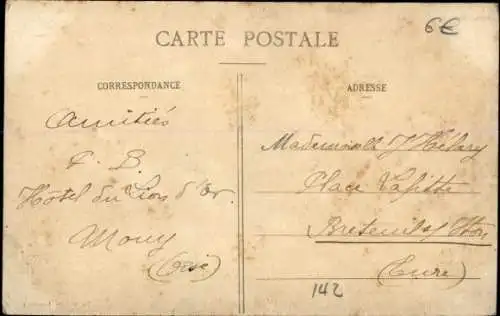 6€
CARTE POSTALE
CORRESPONDANCE
Amitiés
F. B.
Hotel du Lion d'Or
Mouy
(Oise)
ADRESSE
Mademoiselle J Hébery
Place Lafitte
Breteuil s/ Iton
(Eure)
142